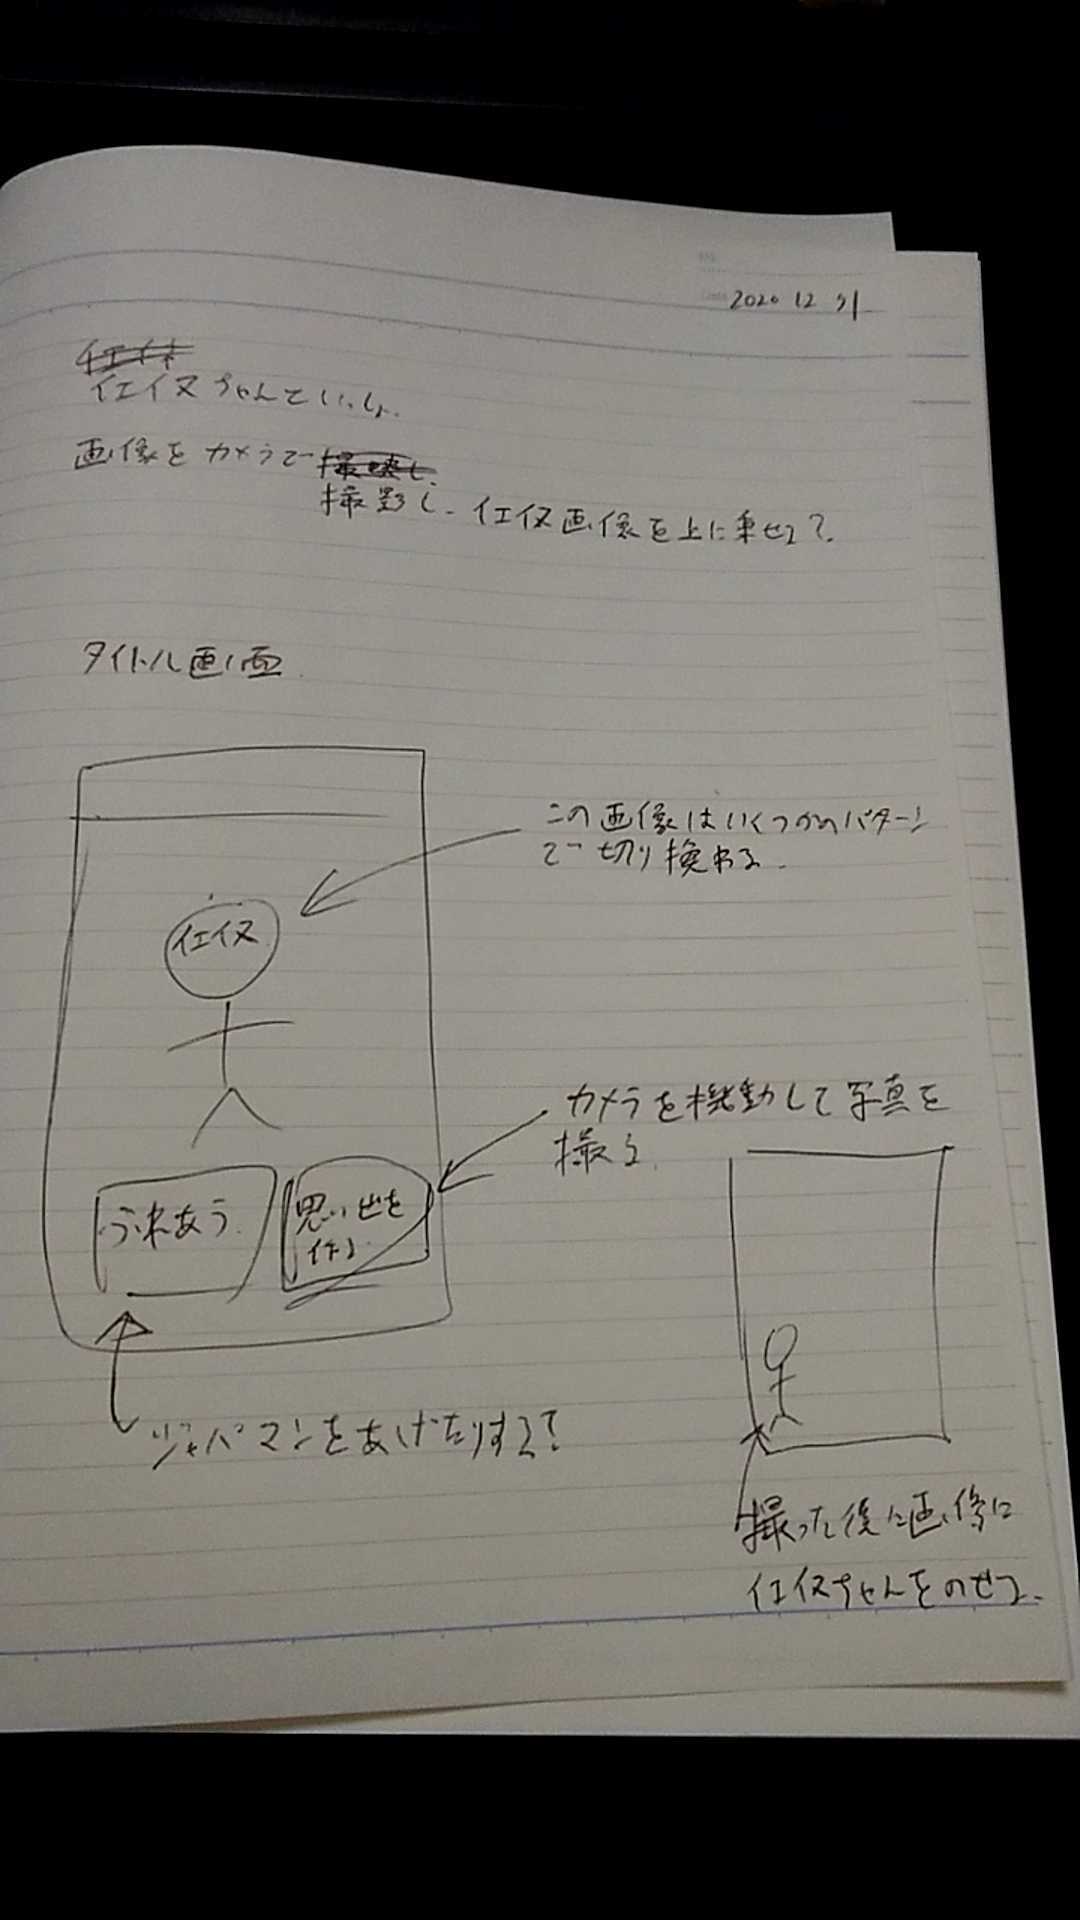 2020 12 31
イエイヌちゃんといっしょ
画像をカメラで
撮影し、イエイヌ画像を上に乗せる。
タイトル画面
この画像はいくつかのパターン
で切り換わる。
イエイヌ
カメラを機動して写真を
撮る
ふれあう
思い出を
作る
ジャパマンをあげたりする?
撮った後に画像に
イエイヌちゃんをのせる